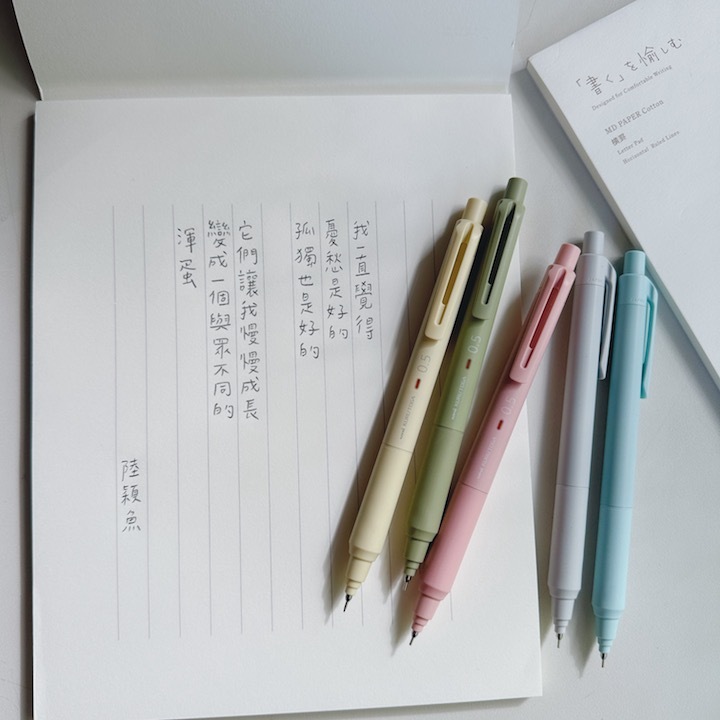 我一直覺得
憂愁是好的
孤獨也是好的
它們讓我慢慢成長
變成一個與眾不同的
渾蛋
陸穎魚
「書く」を愉しむ
Designed for Comfortable Writing
MD PAPER Cotton
横罫
Letter Pad
Horizontal Ruled Lines
0.5
0.5